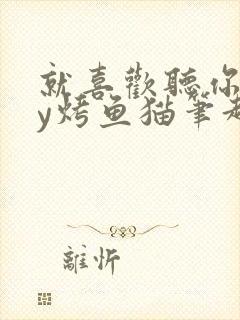 就喜歡聽你
y烤鱼猫筆趣
離忻